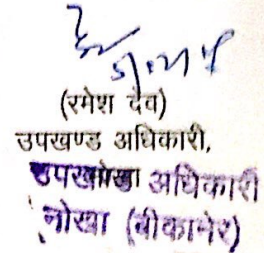 (रमेश देव)
उपखण्ड अधिकारी,
उपखण्ड अधिकारी
नोखा (बीकानेर)